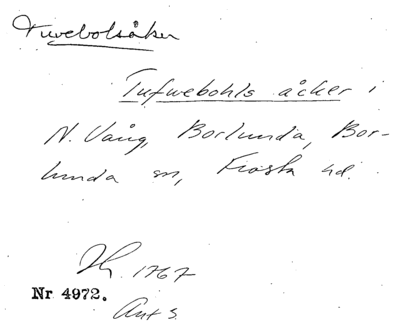 Tuvebolsåker
Tufwebohls åcker i
N. Vång, Borlunda, Bor-
lunda sn, Frosta hd.
1767
Nr 4972.
Ant 5